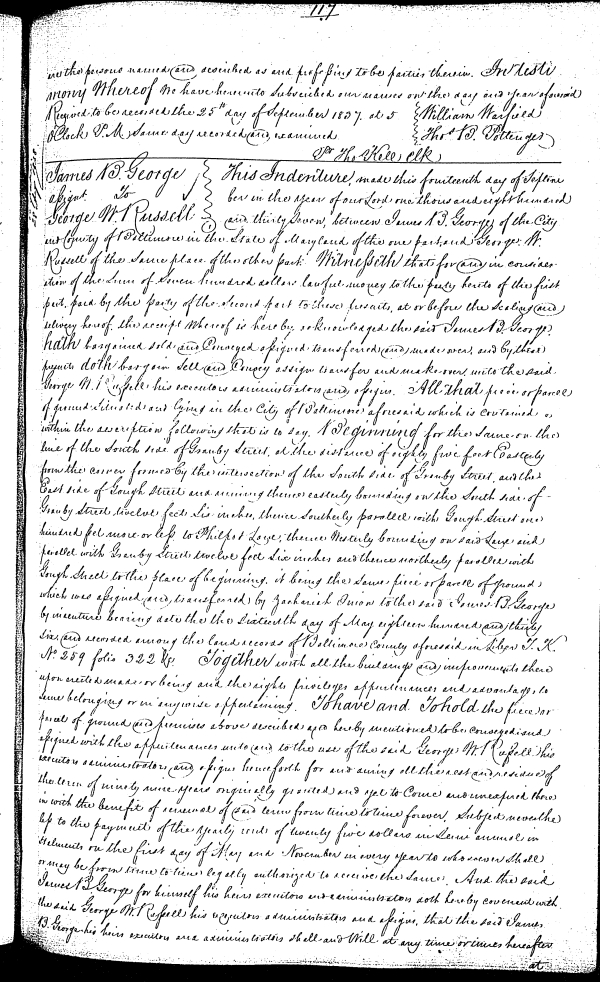 117
are the persons named and described as and professing to be parties therein. In testi
mony Whereof We have hereunto subscribed our names on the day and year aforesaid
Received to be recorded the 25th day of September 1837. at 5 William Warfield
oClock P.M. Same day recorded and examined Thos. B. Pottenger
Pr Thos Kell clk
James B. George This Indenture, made this fourteenth day of Septem
assignt. To ber in the year of our Lord one thousand eight hundred
George W. Russell and thirty Seven, between James B. George of the City
and County of Baltimore in the State of Maryland of the one part, and George W.
Russell of the same place of the other part. Witnesseth that for and in consider
ation of the Sum of Seven hundred dollars lawful money to the party hereto of the first
part, paid by the party of the Second part to these presents, at or before the sealing and
delivery hereof, the receipt whereof is hereby acknowledged the said James B. George,
hath bargained sold and Conveyed assigned transferred and made over, and by these
presents doth bargain Sell and Convey assign transfer and make over, unto the said
George W. Russell his executors administrators and assigns. All that piece or parcel
of ground Situate and lying in the City of Baltimore aforesaid which is contained
within the description following that is to say. Beginning for the same on the
line of the South side of Granby Street, at the distance of eighty five feet Easterly
from the corner formed by the intersection of the South side of Granby Street, and the
East side of Gough Street and running thence easterly bounding on the South side of
Granby Street twelve feet Six inches, thence Southerly parallel with Gough Street one
hundred feet more or less to Philpot Lane, thence Westerly bounding on said Lane and
parallel with Granby Street twelve feet Six inches and thence northerly parallel with
Gough Street to the place of beginning. it being the same piece or parcel of ground
which was assigned and transferred by Zachariah Onion to the said James B. George
by indenture bearing date the the Sixteenth day of May eighteen hundred and thirty
Six, and recorded among the land records of Baltimore County aforesaid in Liber T. K.
No. 259 folio 322 &c. Together with all the buildings and improvements there
upon erected made or being and the rights priviledges appurtenances and advantages to
same belonging or in anywise appertaining. To have and To hold the piece or
parcel of ground and premises above described and hereby mentioned to be conveyed and
assigned with the appurtenances unto and to the use of the said George W. Russell his
executors administrators and assigns henceforth for and during all the rest and residue of
the term of ninety nine years originally granted and yet to Come and unexpired there
in with the benefit of renewal of said term from time to time forever. Subject neverthe
less to the payment of the yearly rent of twenty five dollars in Semi annual in
stalments on the first day of May and November in every year to whosoever shall
or may be from time to time legally authorized to receive the same. And the said
James B. George for himself his heirs executors and administrators doth hereby covenant with
the said George W. Russell his executors administrators and assigns, that the said James
B. George his heirs executors and administrators shall and Will at any time or times hereafter
at